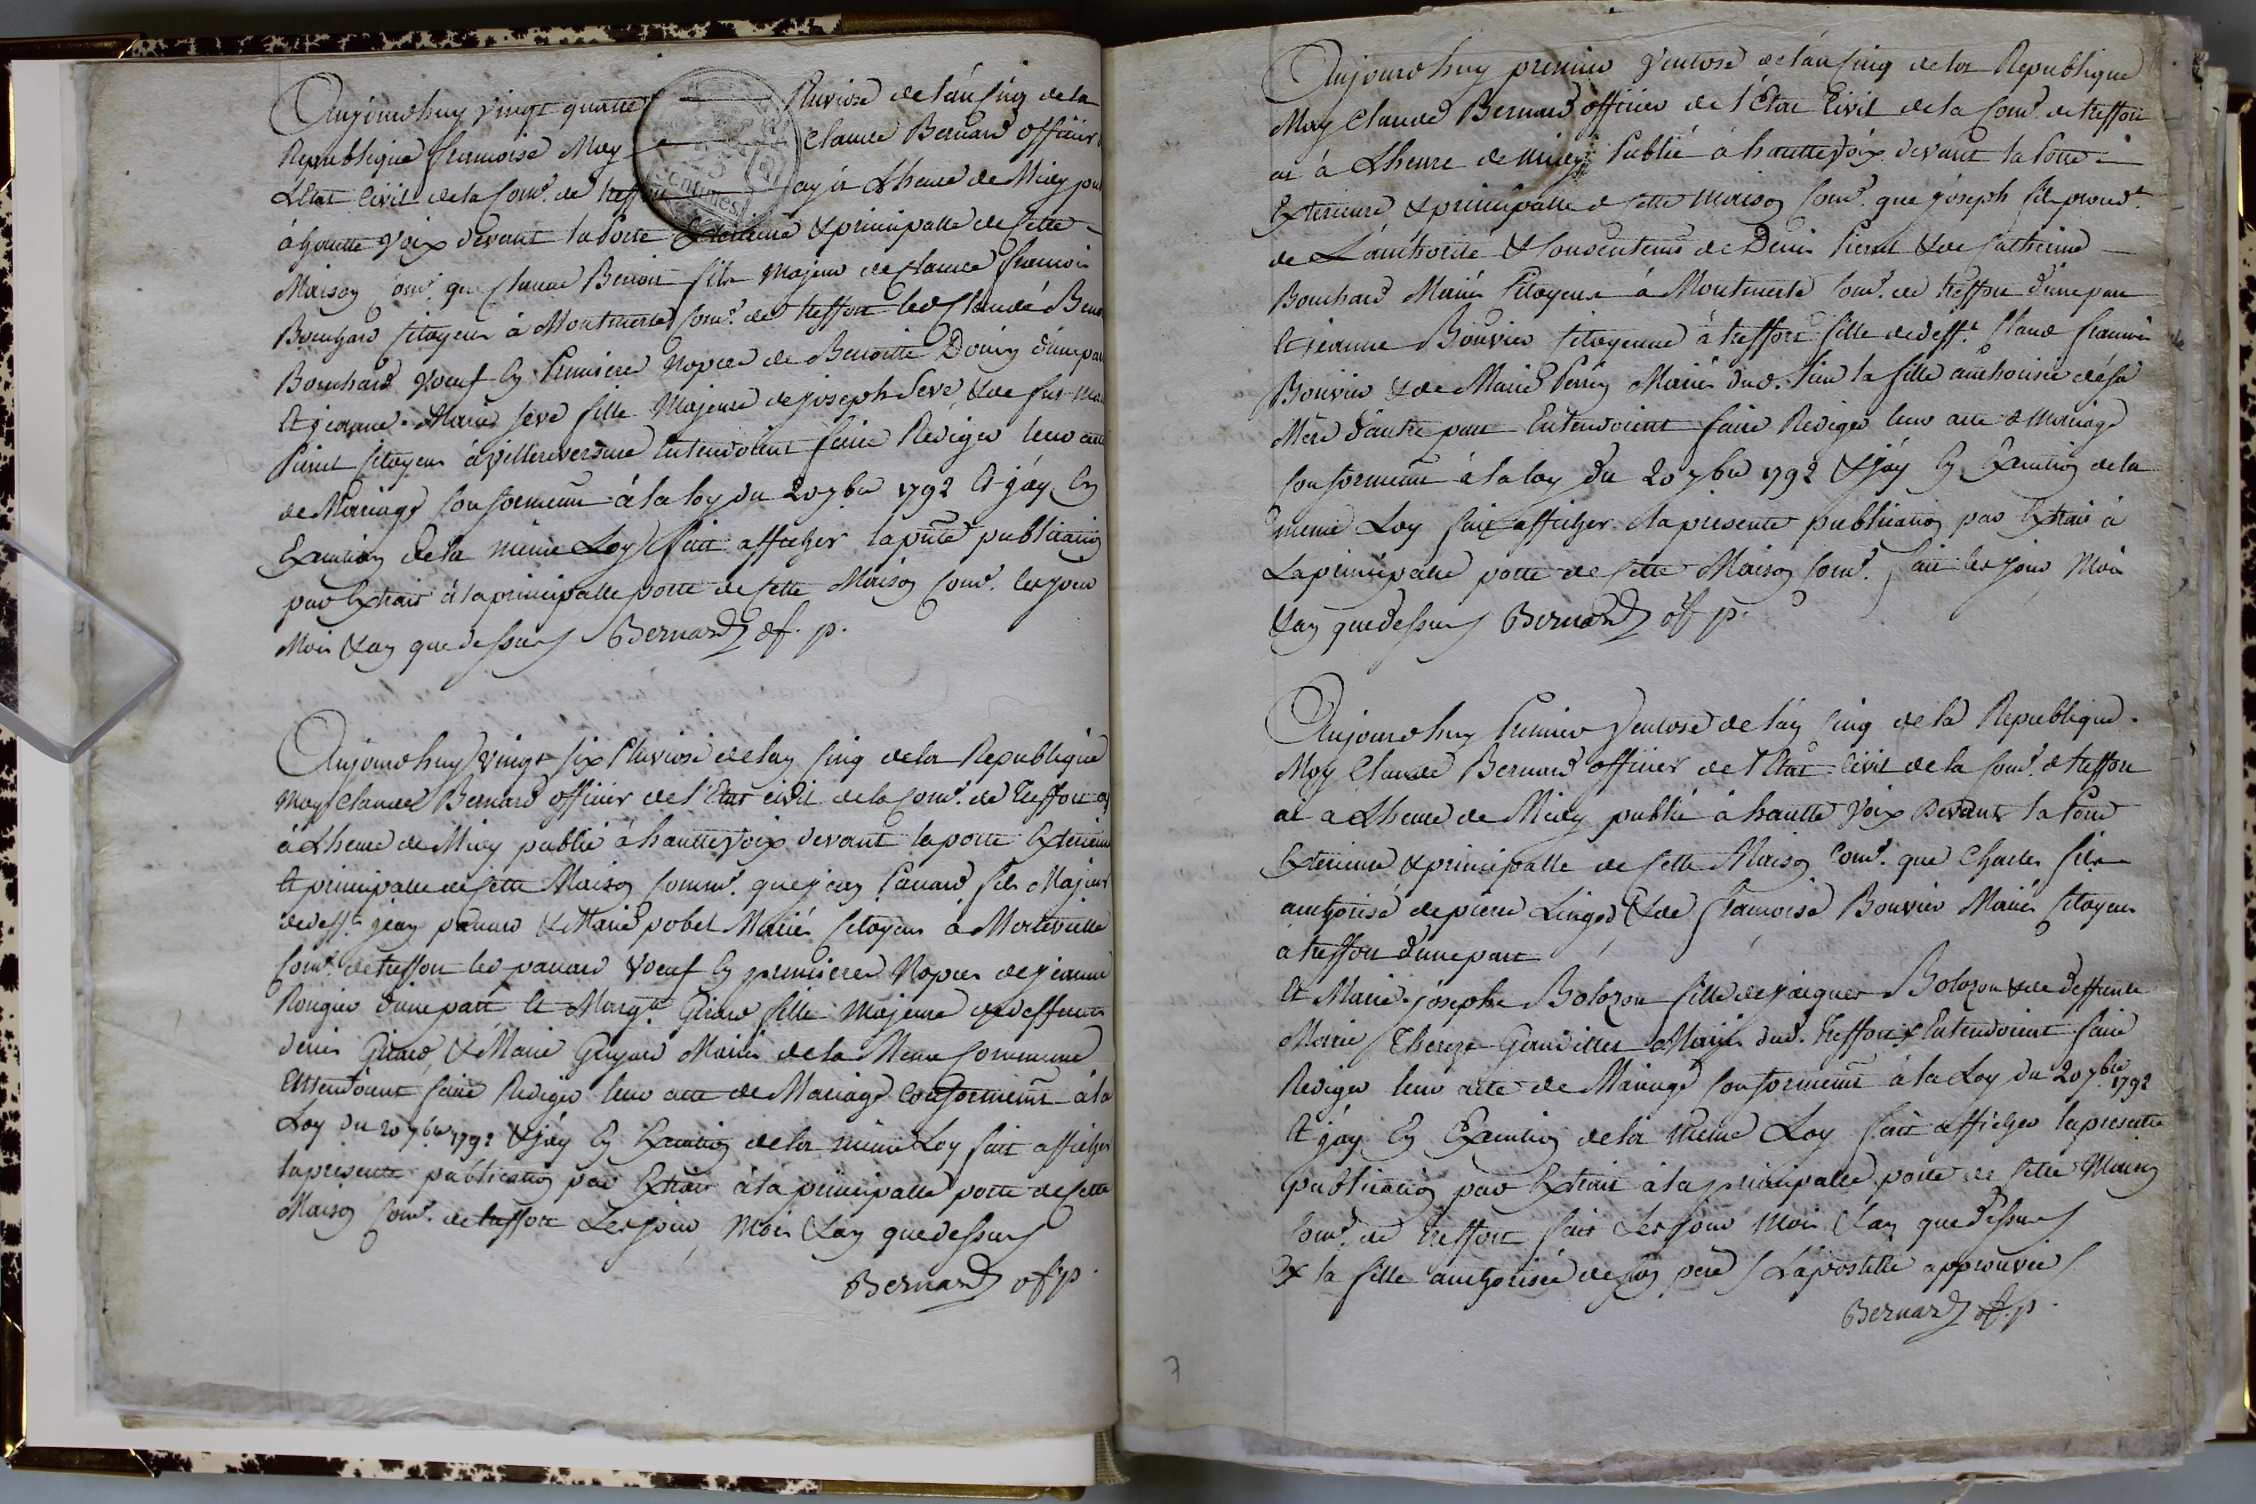 Aujourdhuy vingt quatre Pluviose de l'an cinq de la
Republique francoise Moy Claude Bernard officier
Letat Civil de la Com.e de treffort ay à Lheure de Midy
à hautte Voix devant la Porte Exterieure & principalle de Cette
Maison Com.e que Claude Benoit fils Majeur de Claude francois
Bouchard Citoyen à Montmerle Com.e de treffort led Claude Benoit
Bouchard Voeuf en Premiere Nopces de Benoitte Doiry d'une part
Et jeanne Marie seve fille Majeure de joseph Seve & de
Citoyens à villereversure Entendoient faire Rediger leur acte
de Mariage Conformement à la loy du 20 7bre 1792 Et jáy En
Execution de la même Loy fait afficher la pnte publication
par Extrait à la principalle porte de Cette Maison Com.e les jour
Mois & an que dessus Bernard of. p.
Aujourdhuy vingt six Pluviose de lan Cinq de la Republique
Moy Claude Bernard officier de l'Etat civil de la Com.e de treffort ay
à Lheure de Midy publié à hautte Voix devant la porte Exterieure
Et principalle de Cette Maison Comm.e que jean Panard fils Majeur
de deff.t jean panard & Marie pobel Mariés Citoyens à
Com.e de treffort led panard Voeuf en premiere Nopces de jeanne
Rougier d'une part Et Marg.te Girard fille Majeure de deffunts
denis Girard & Marie Guyard Mariés de la Meme Commune
Entendoient faire Rediger leur acte de Mariage Conformement à la
Loy du 20 7bre 1792 & jáy En Execution de la même Loy fait afficher
la presente publication par Extrait à la principalle porte de Cette
Maison Com.e de treffort Les jour Mois & an que dessus
Bernard of. p.
Aujourdhuy premier Ventose de l'an Cinq de la Republique
Moy Claude Bernard officier de l'Etat Civil de la Com.e de treffort
ai à Lheure de midy Publié à hautte Voix devant la Porte
Exterieure & principalle de Cette Maison Com.e que joseph fils
de L'authorité & Consentement de Denis Pernet & de Catherine
Bouchard Mariés Citoyens à Montmerle Com.e de treffort d'une part
Et jeanne Bouvier Citoyenne à treffort fille de deff.t Claude francois
Bouvier & de Marie Perrin Mariés dud. Lieu la fille authorisée de sa
Mere d'autre part Entendoient faire Rediger leur acte de Mariage
Conformement à la loy du 20 7bre 1792 & jáy En Execution de la
même Loy fait afficher la presente publication par Extrait à
La principalle porte de Cette Maison Com.e fait les jour, Mois
& an que dessus Bernard of p.
Aujourdhuy Premier Ventose de l'an Cinq de la Republique
Moy Claude Bernard officier de l'Etat Civil de la Com.e de treffort
ai a Lheure de Midy publié à hautte Voix Devant la Porte
Exterieure & principalle de Cette Maison Com.e que Charles fils
authorisé de pierre Linged & de francoise Bouvier Mariés Citoyens
à treffort d'une part
Et Marie josephe Bolozon fille de jacques Bolozon & de deffunte
Marie Thereze Mariés dud. treffort X Entendoient faire
Rediger leur acte de Mariage Conformement à la Loy du 20 7bre 1792
Et jáy En Execution de la même Loy fait afficher la presente
publication par Extrait à la principalle porte de Cette Maison
Com.e de treffort fait Les jour Mois & an que dessus
X la fille authorisée de son pere / L'apostille approuvée /
Bernard of. p.
7